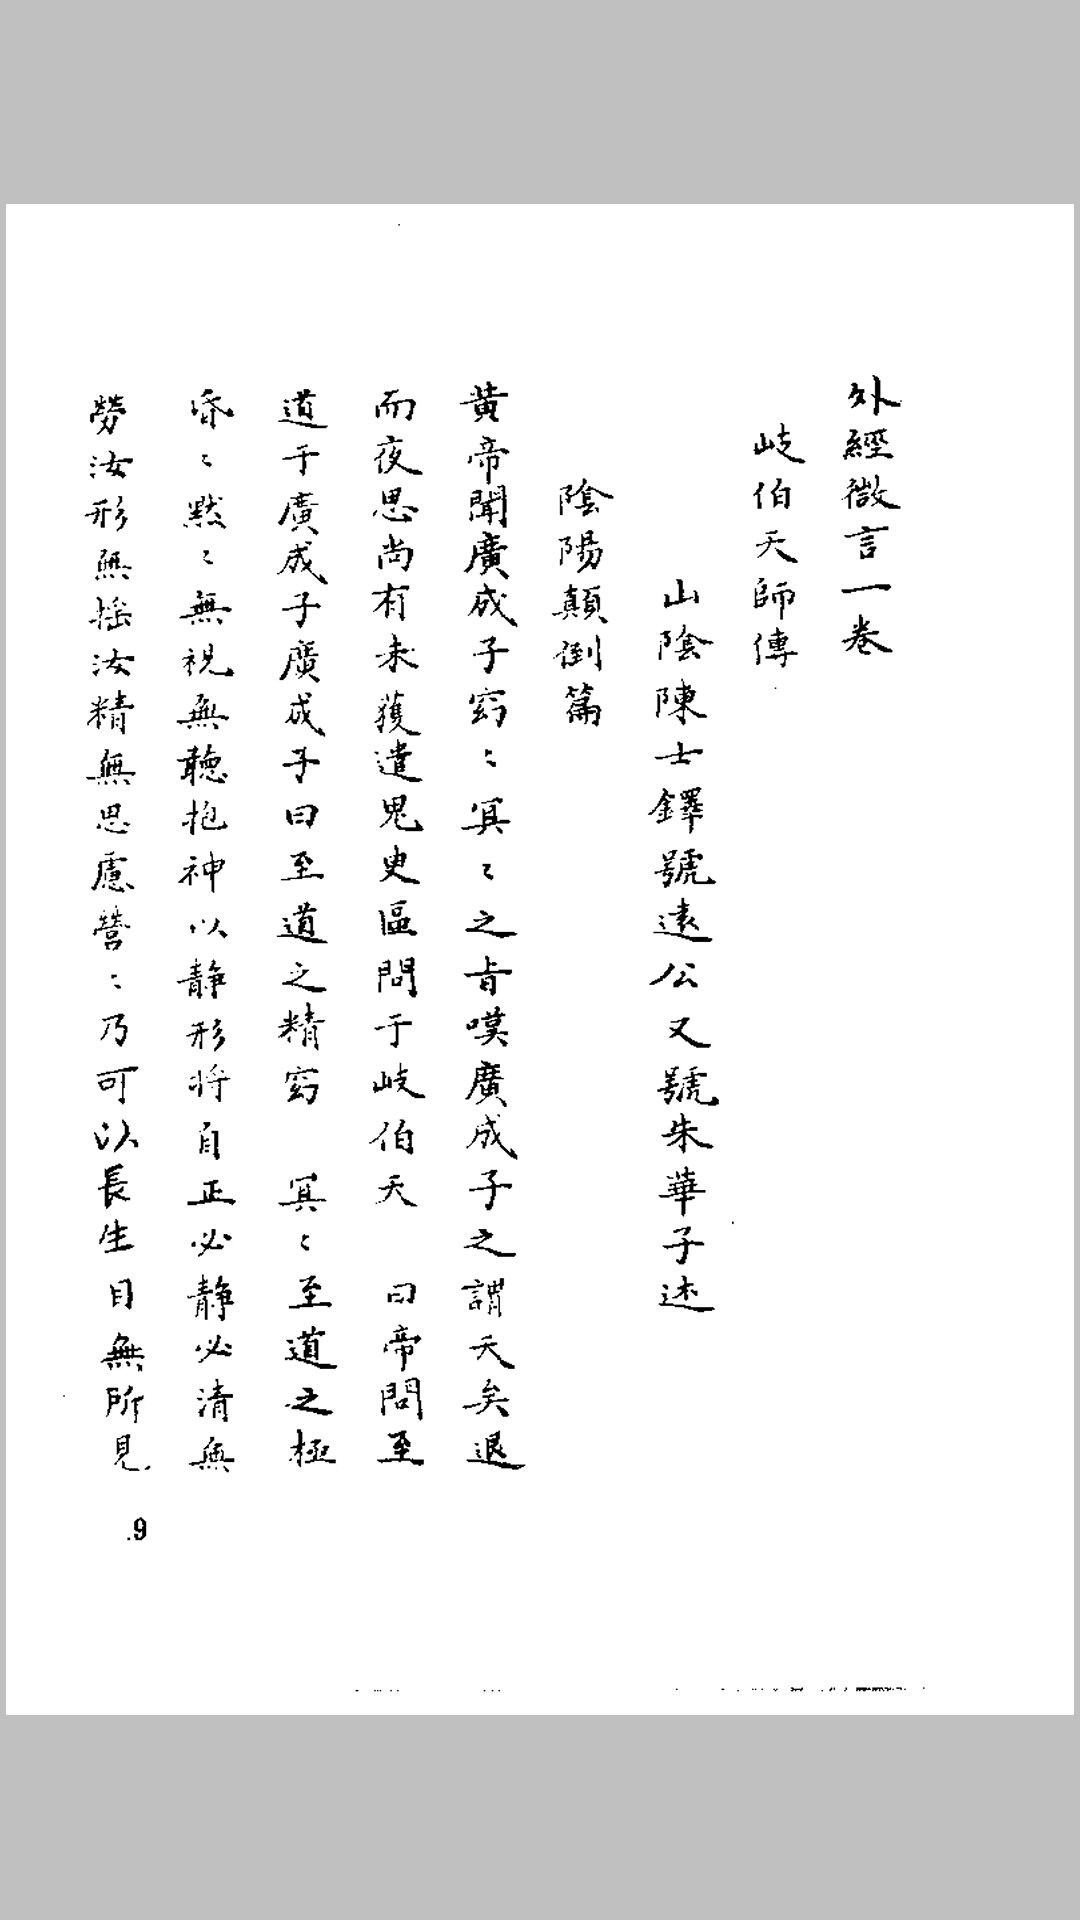 外經微言一卷
岐伯天師傳
山陰陳士鐸號遠公又號朱華子述
陰陽顛倒篇
黃帝聞廣成子窈〻冥〻之旨嘆廣成子之謂天矣退
而夜思尚有未獲遣鬼臾區問于岐伯天 曰帝問至
道于廣成子廣成子曰至道之精窈 冥〻至道之極
昏〻默〻無視無聽抱神以靜形將自正必靜必清無
勞汝形無搖汝精無思慮營〻乃可以長生目無所見
.9